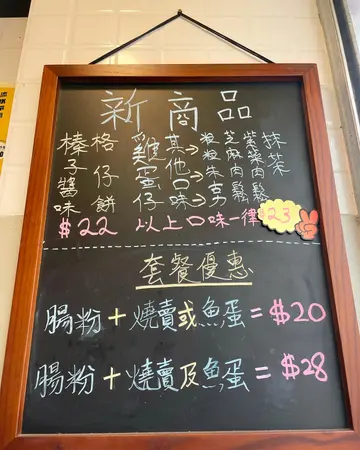 新商品
榛子醬味
格仔餅
$22
雞蛋仔
其他口味→
粒粒朱克力
芝麻肉鬆
紫菜肉鬆
抹茶
以上口味一律$23
套餐優惠
腸粉+燒賣或魚蛋=$20
腸粉+燒賣及魚蛋=$28